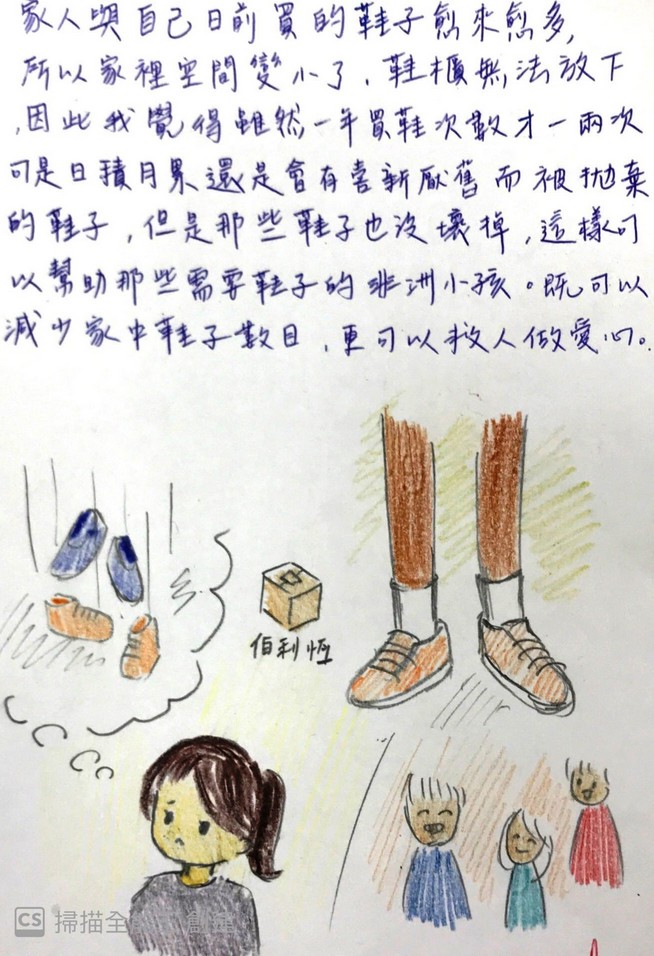 家人與自己日前買的鞋子愈來愈多,
所以家裡空間變小了,鞋櫃無法放下
,因此我覺得雖然一年買鞋次數才一兩次
可是日積月累還是會有喜新厭舊而被拋棄
的鞋子,但是那些鞋子也沒壞掉,這樣可
以幫助那些需要鞋子的非洲小孩。既可以
減少家中鞋子數目,更可以救人做愛心。
伯利恆
CS 掃描全能王 創建